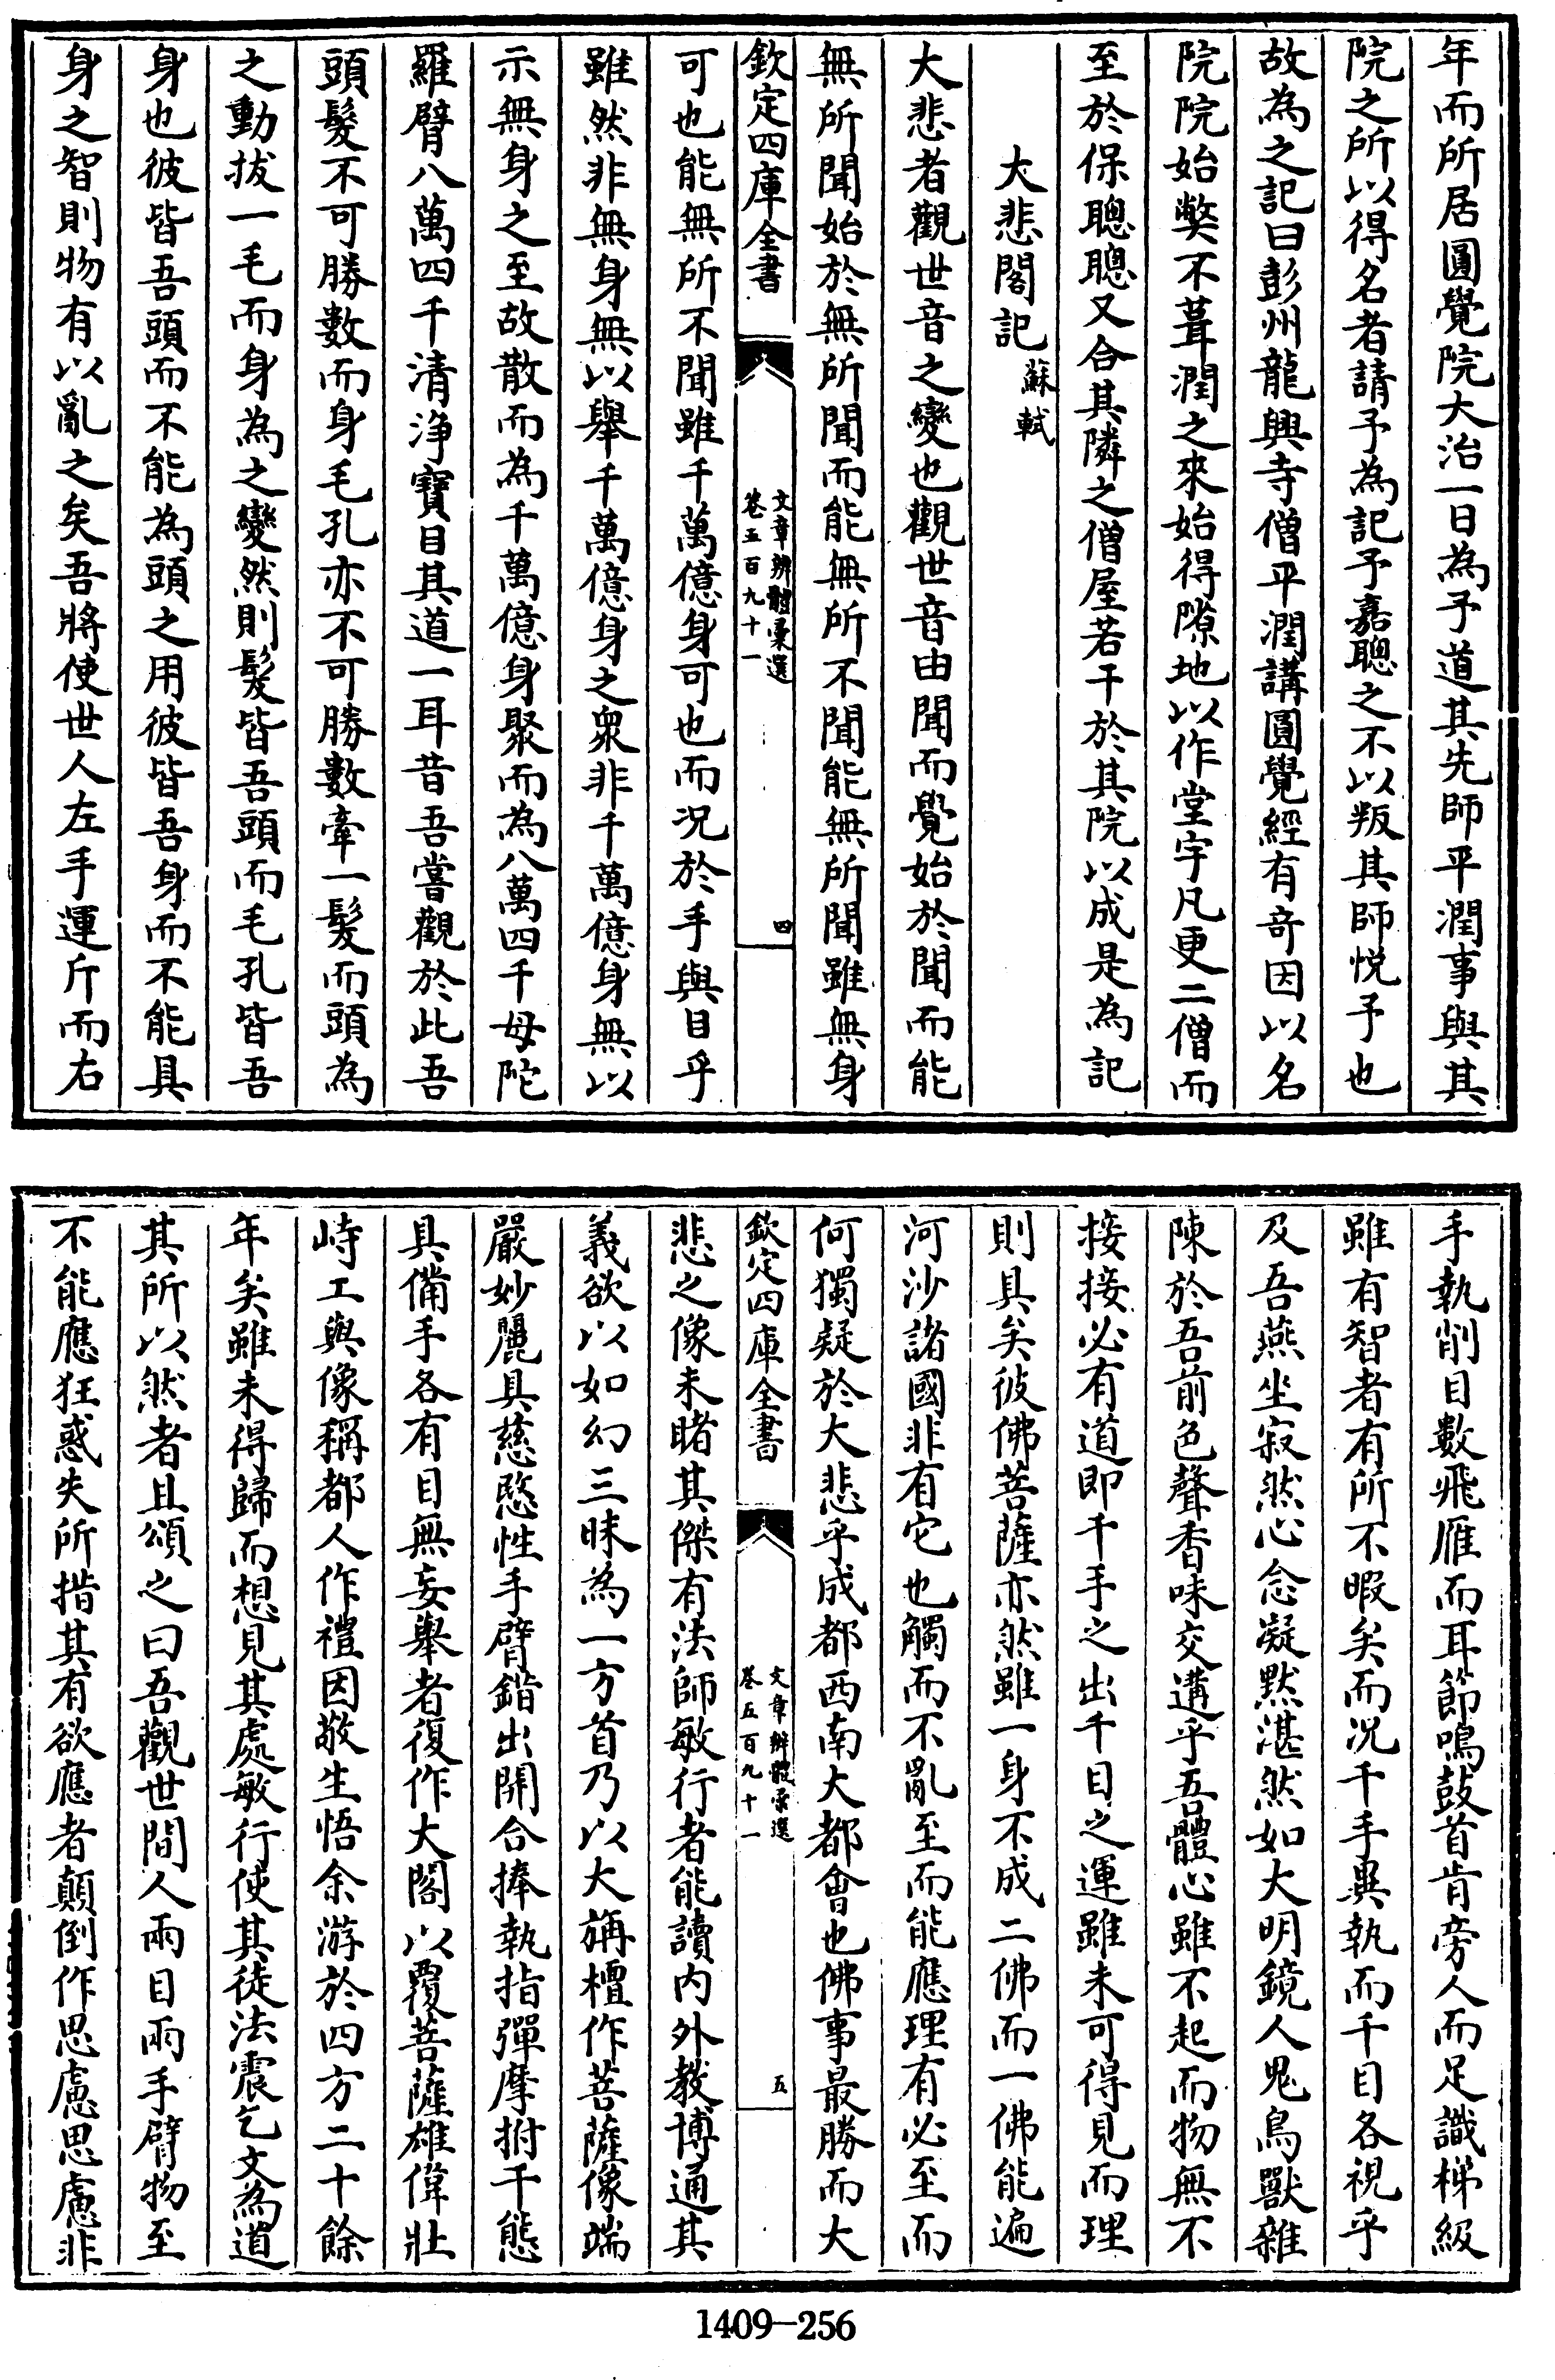 年而所居圓覺院大治一日為予道其先師平潤事與其
院之所以得名者請予為記予嘉聰之不以叛其師悅予也
故為之記曰彭州龍興寺僧平潤講圓覺經有奇因以名
院院始弊不葺潤之來始得隙地以作堂宇凡更二僧而
至於保聰聰又合其隣之僧屋若干於其院以成是為記
大悲閣記 蘇軾
大悲者觀世音之變也觀世音由聞而覺始於聞而能
無所聞始於無所聞而能無所不聞能無所聞雖無身
欽定四庫全書 文章辨體彙選 卷五百九十一 四
可也能無所不聞雖千萬億身可也而况於手與目乎
雖然非無身無以舉千萬億身之衆非千萬億身無以
示無身之至故散而為千萬億身聚而為八萬四千母陀
羅臂八萬四千清淨寶目其道一耳昔吾嘗觀於此吾
頭髮不可勝數而身毛孔亦不可勝數牽一髮而頭為
之動拔一毛而身為之變然則髮皆吾頭而毛孔皆吾
身也彼皆吾頭而不能為頭之用彼皆吾身而不能具
身之智則物有以亂之矣吾將使世人左手運斤而右
手執削目數飛雁而耳節鳴鼓首肯旁人而足識梯級
雖有智者有所不暇矣而况千手異執而千目各視乎
及吾燕坐寂然心念凝默湛然如大明鏡人鬼鳥獸雜
陳於吾前色聲香味交遘乎吾體心雖不起而物無不
接接必有道即千手之出千目之運雖未可得見而理
則具矣彼佛菩薩亦然雖一身不成二佛而一佛能遍
河沙諸國非有它也觸而不亂至而能應理有必至而
何獨疑於大悲乎成都西南大都會也佛事最勝而大
欽定四庫全書 文章辨體彙選 卷五百九十一 五
悲之像未睹其傑有法師敏行者能讀内外教博通其
義欲以如幻三昧為一方首乃以大旃檀作菩薩像端
嚴妙麗具慈愍性手臂錯出開合捧執指彈摩拊千態
具備手各有目無妄舉者復作大閣以覆菩薩雄偉壯
峙工與像稱都人作禮因敬生悟余游於四方二十餘
年矣雖未得歸而想見其處敏行使其徒法震乞文為道
其所以然者且頌之曰吾觀世間人兩目兩手臂物至
不能應狂惑失所措其有欲應者顛倒作思慮思慮非
1409-256